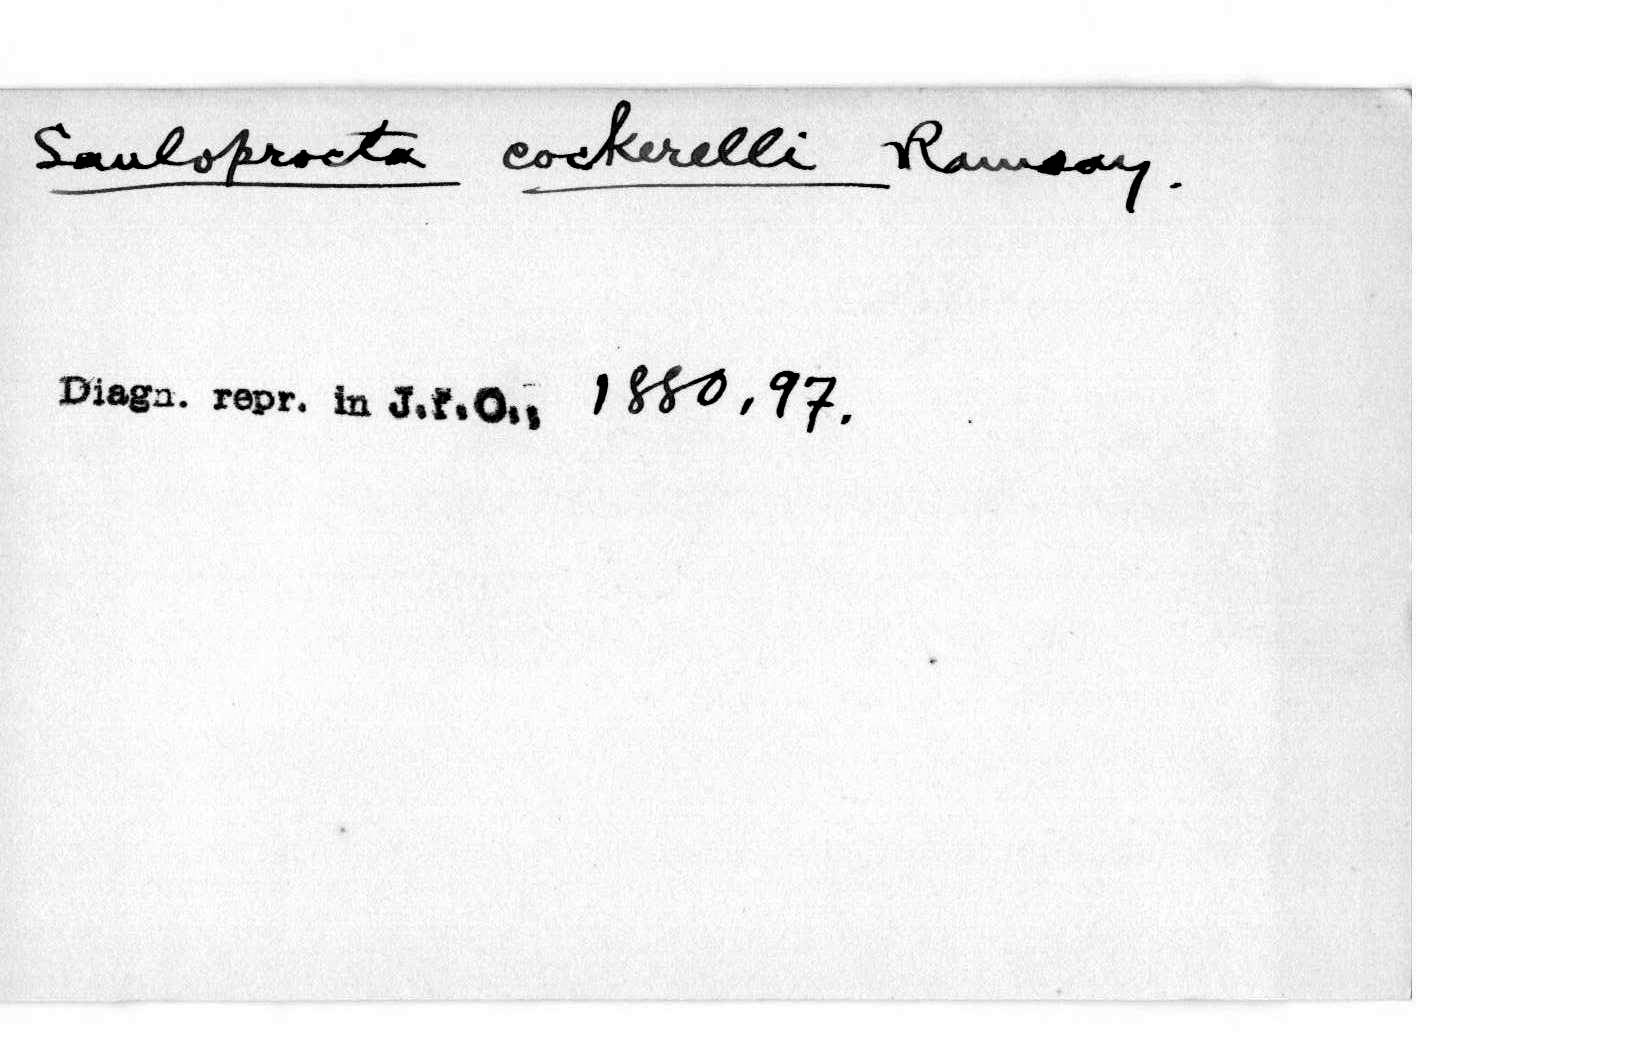 Sauloprocta cockerelli Ramsay.
Diagn. repr. in J.f.O., 1880, 97.